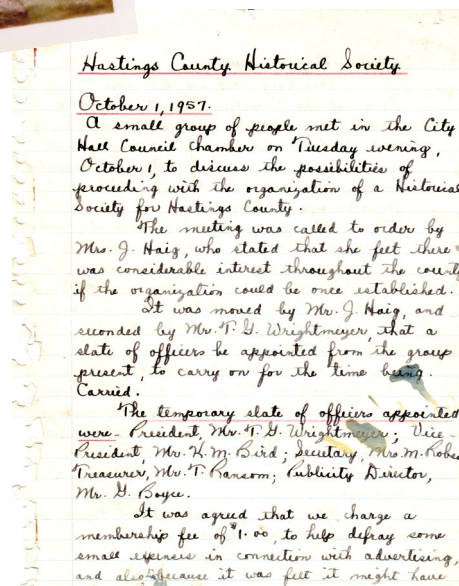 Hastings County Historical Society
October 1, 1957.
A small group of people met in the City
Hall Council Chamber on Tuesday evening,
October 1, to discuss the possibilities of
proceeding with the organization of a Historical
Society for Hastings County.
The meeting was called to order by
Mrs. J. Haig, who stated that she felt there
was considerable interest throughout the county
if the organization could be once established.
It was moved by Mr. J. Haig, and
seconded by Mr. T. G. Wrightmeyer, that a
slate of officers be appointed from the group
present, to carry on for the time being.
Carried.
The temporary slate of officers appointed
were - President, Mr. T. G. Wrightmeyer; Vice -
President, Mr. K. M. Bird; Secretary, Mrs. M.
Treasurer, Mr. T. Ransom; Publicity Director,
Mr. G. Boyce.
It was agreed that we charge a
membership fee of $1.00, to help defray some
small expenses in connection with advertising,
and also because it was felt it might have